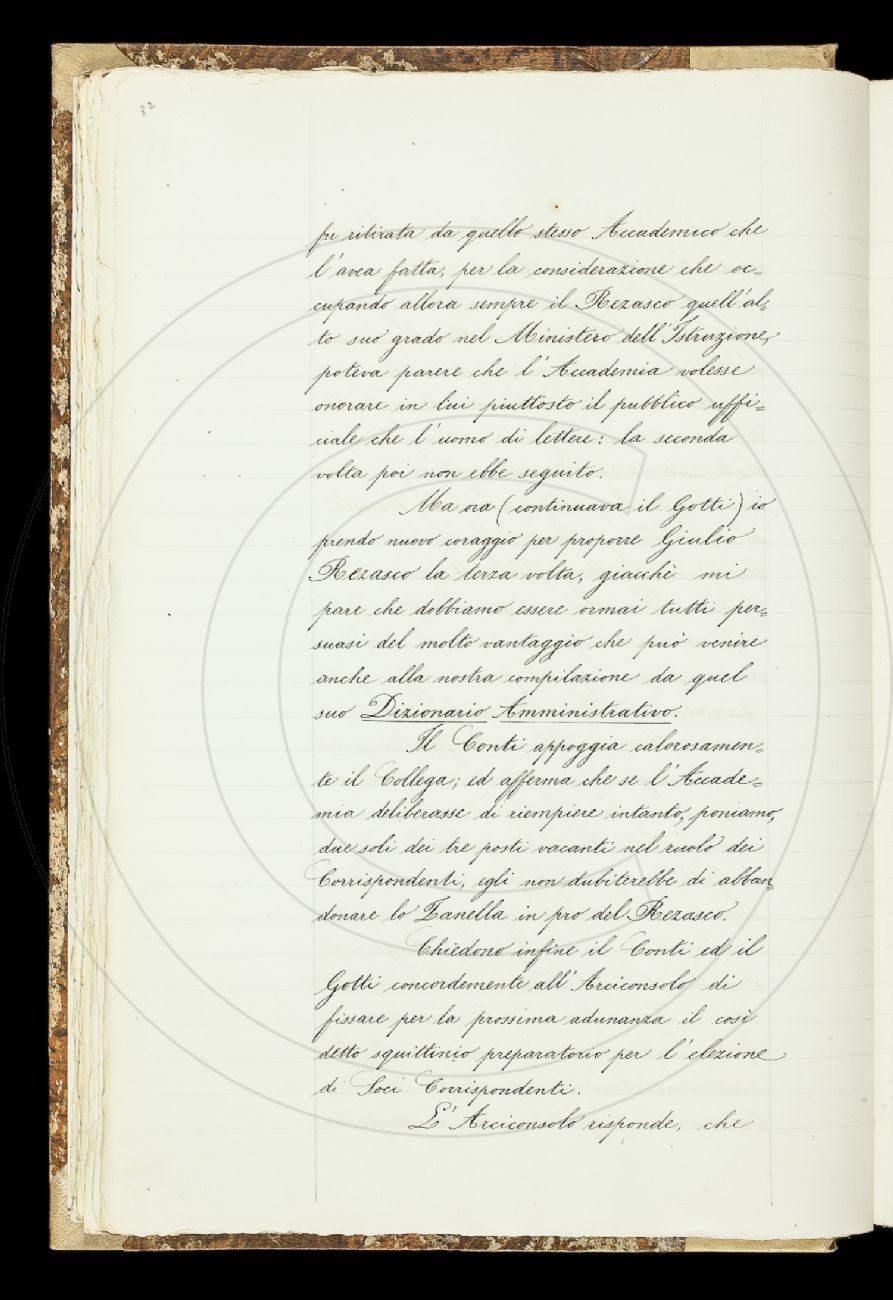 82
fu ritirata da quello stesso Accademico che
l'avea fatta, per la considerazione che oc=
cupando allora sempre il Rezasco quell'al=
to suo grado nel Ministero dell'Istruzione,
poteva parere che l'Accademia volesse
onorare in lui piuttosto il pubblico uffi=
ciale che l'uomo di lettere: la seconda
volta poi non ebbe seguito.
Ma ora (continuava il Gotti) io
prendo nuovo coraggio per proporre Giulio
Rezasco la terza volta, giacchè mi
pare che dobbiamo essere ormai tutti per=
suasi del molto vantaggio che può venire
anche alla nostra compilazione da quel
suo Dizionario Amministrativo.
Il Conti appoggia calorosamen=
te il Collega; ed afferma che se l'Accade=
mia deliberasse di riempiere intanto, poniamo,
due soli dei tre posti vacanti nel ruolo dei
Corrispondenti, egli non dubiterebbe di abban=
donare lo Zanella in pro del Rezasco.
Chiedono infine il Conti ed il
Gotti concordemente all'Arciconsolo di
fissare per la prossima adunanza il così
detto squittinio preparatorio per l'elezione
di Soci Corrispondenti.
L'Arciconsolo risponde, che